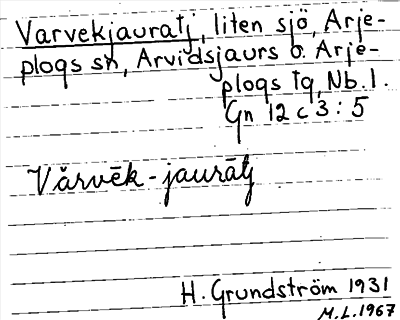 Varvekjauratj, liten sjö, Arje-
plogs sn, Arvidsjaurs o. Arje-
plogs tg, Nb. l.
Gn 12 c 3 : 5
Vǎrvēk - jaurātj
H. Grundström 1931
M.L. 1967